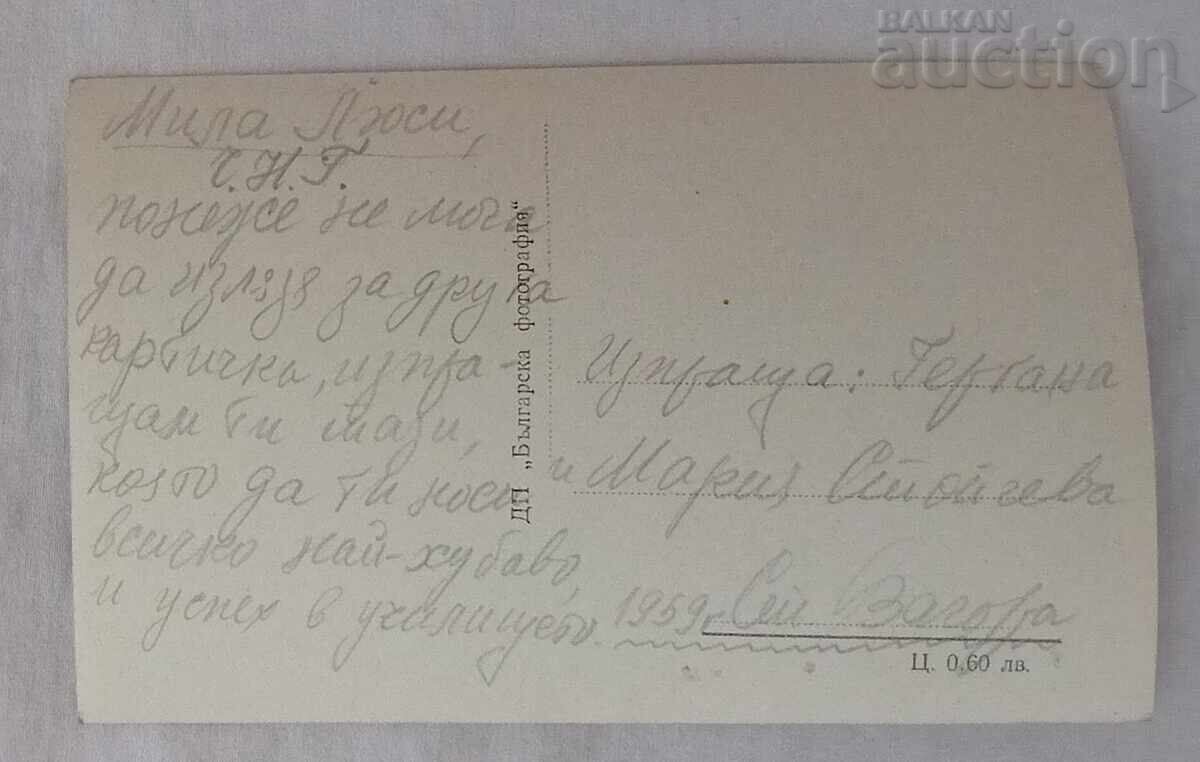 BALKAN
auction
Мила Люси,
Ч.Н.Г.
понеже не мога
да изляза за друга
картичка, изпра-
щам ти тази,
която да ти носи
всичко най-хубаво,
и успех в училището.
ДП „Българска фотография"
Изпраща: Гергана
и Мария Стойчева
1959г. Ст. Загора
Ц. 0,60 лв.